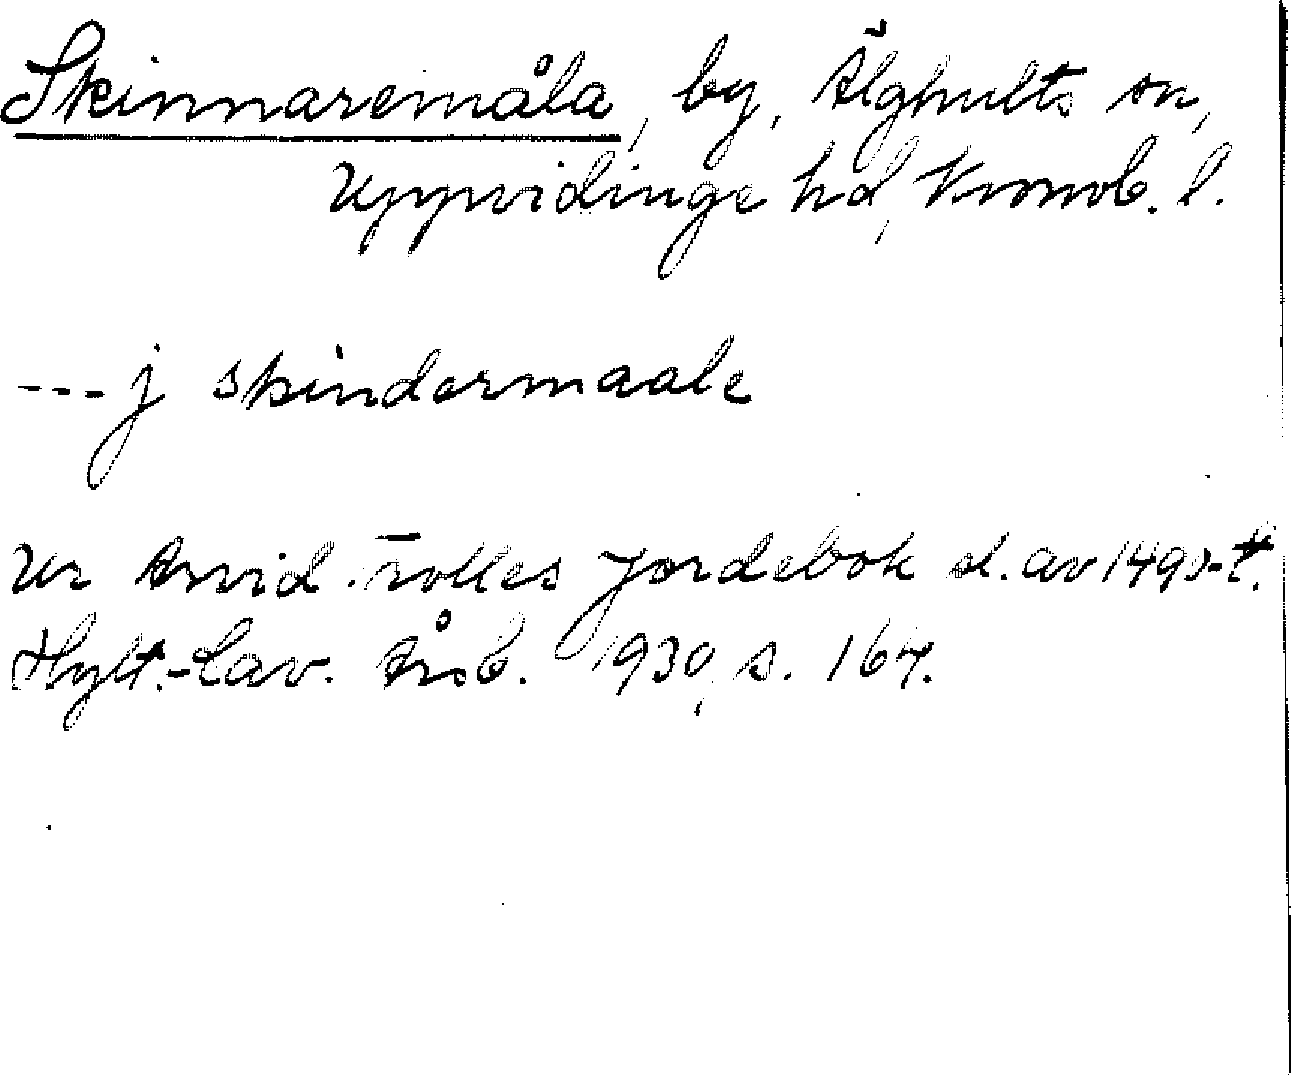 Skinnaremåla, by, Älghults sn,
Uppvidinge hd, Kronob. l.
--- j skindermaale
Ur Arvid Trolles Jordebok sl. av 1490-t.
Hylt.-Cav. Årsb. 1930, s. 164.